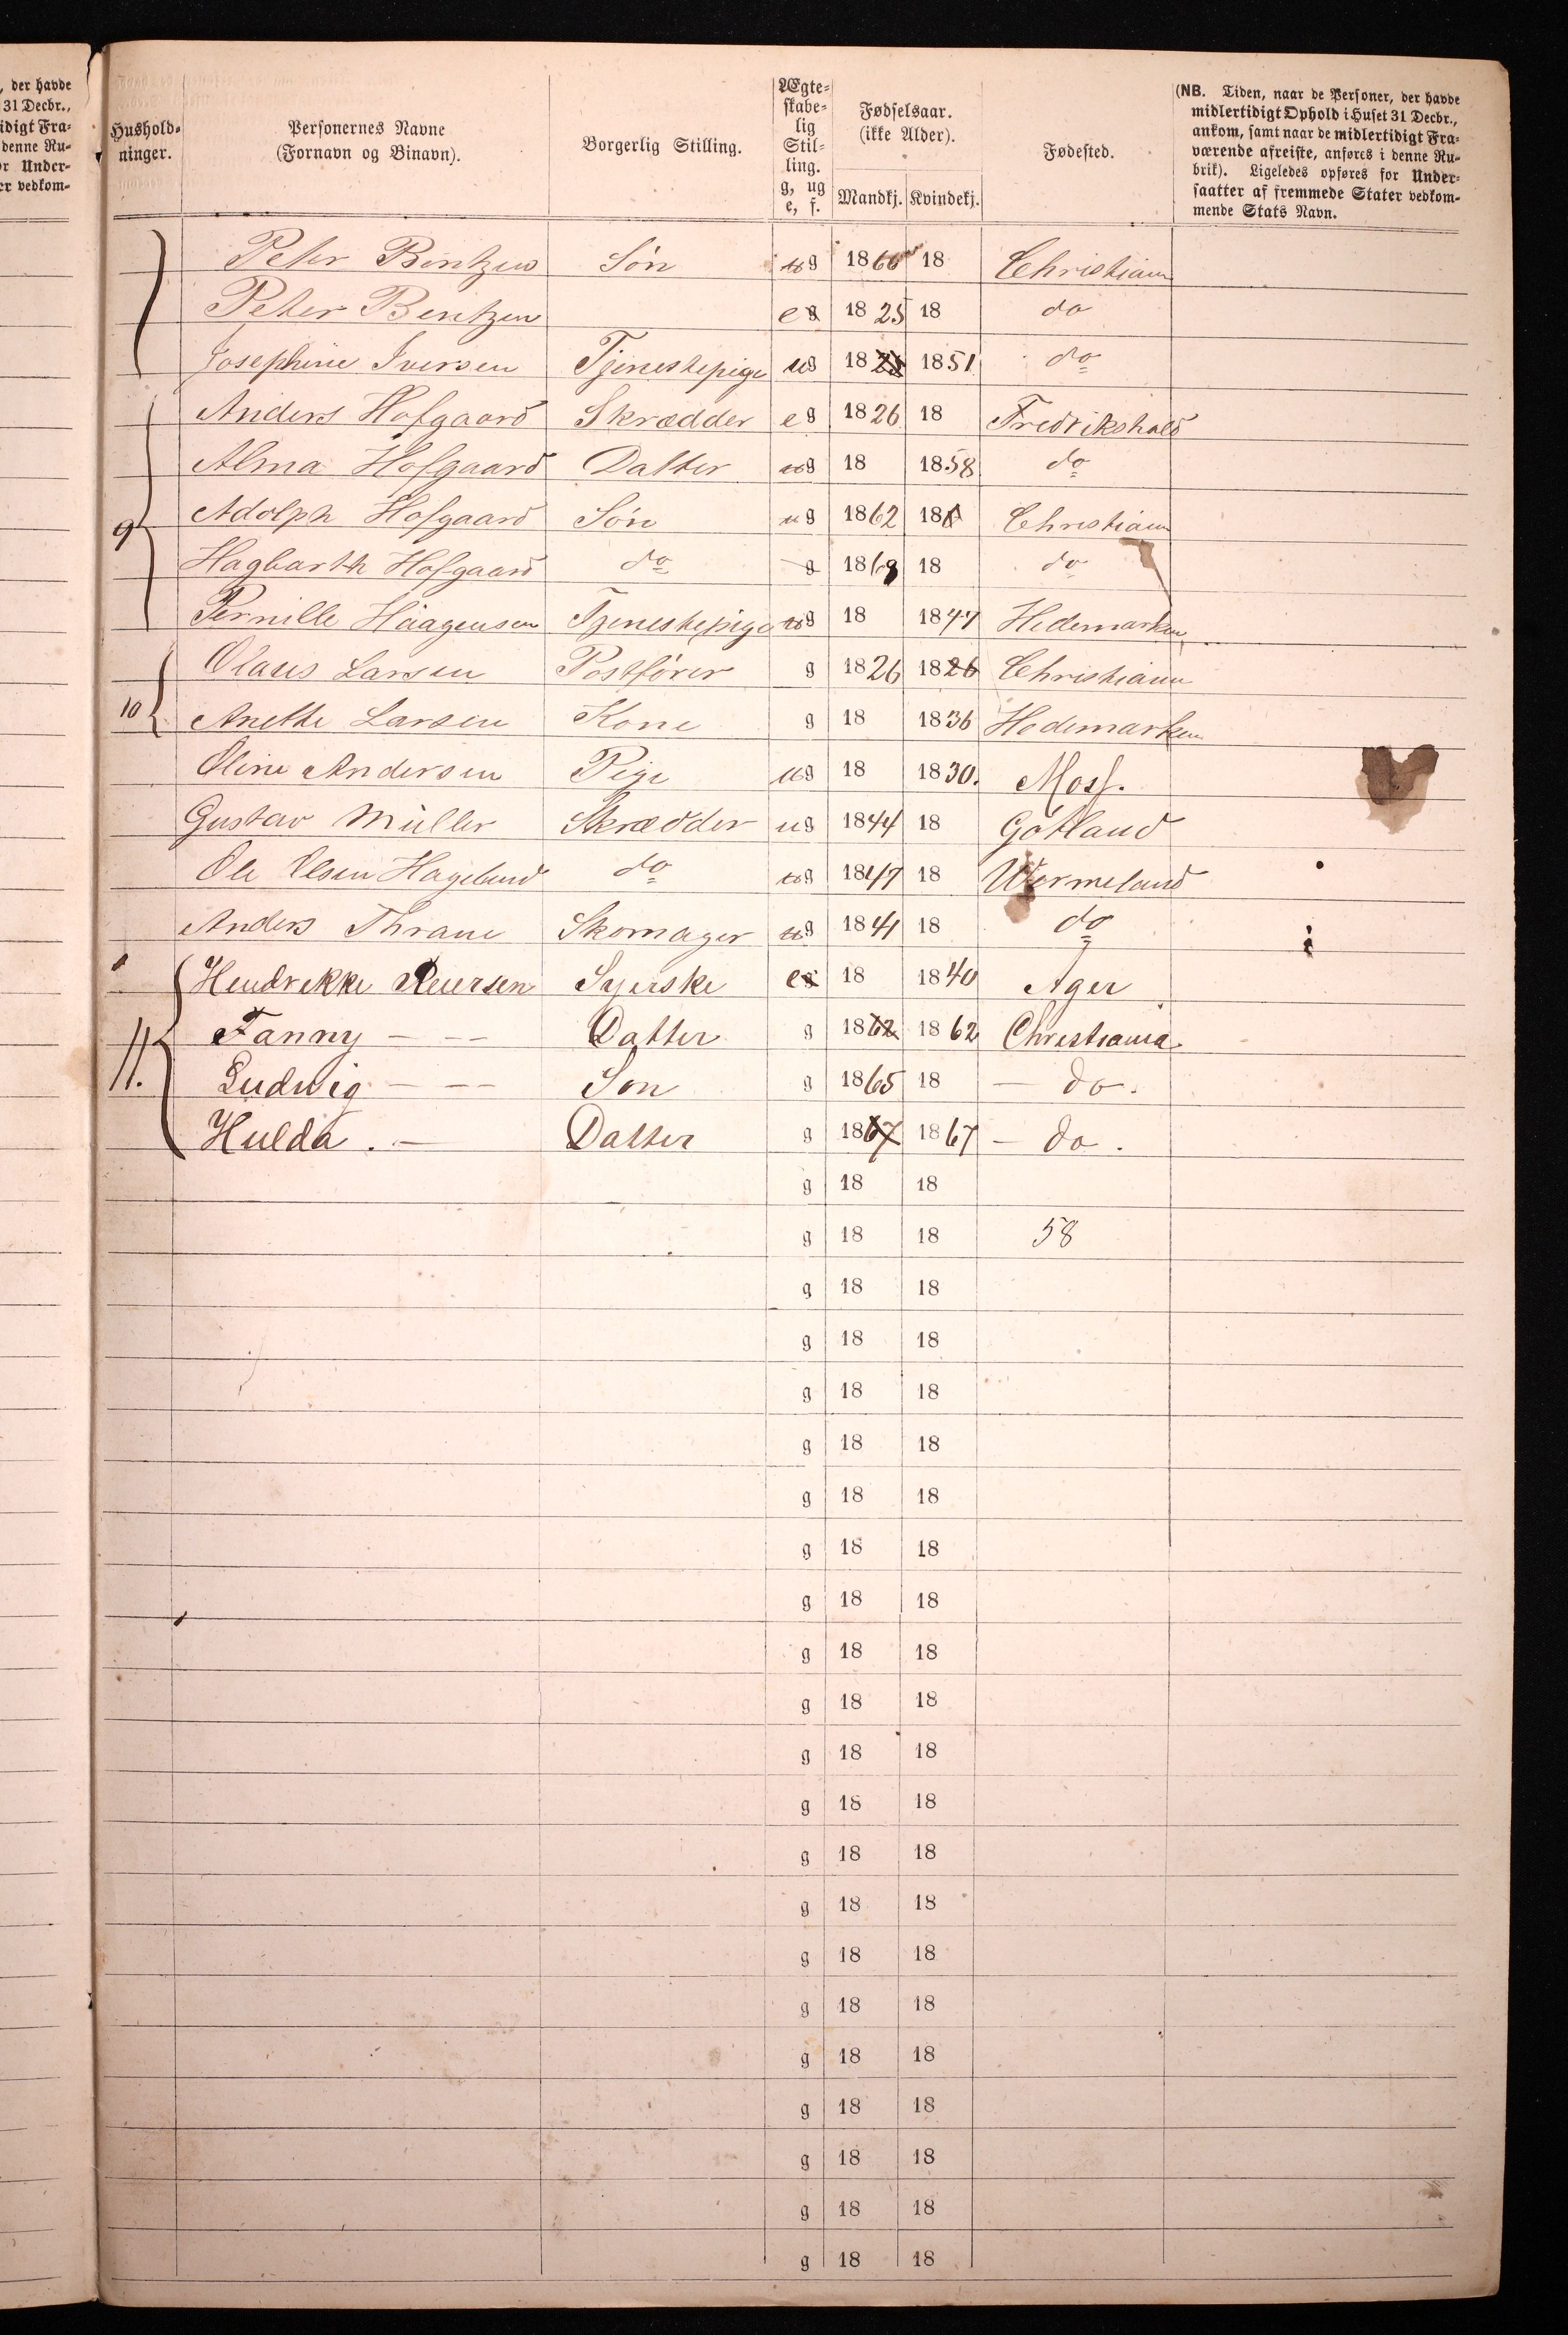 , der havde
31 Decbr.,
idigt Fra-
denne Ru-
or Under-
er vedkom-
Hushold-
ninger.
Personernes Navne
(Fornavn og Binavn).
Borgerlig Stilling.
Ægte-
skabe-
lig
Stil-
ling.
g, ug
e, f.
Fødselsaar.
(ikke Alder).
Mandkj. Kvindekj.
Fødested.
(NB. Tiden, naar de Personer, der havde
midlertidigt Ophold i Huset 31 Decbr.,
ankom, samt naar de midlertidigt Fra-
værende afreiste, anføres i denne Ru-
brik). Ligeledes opføres for Under-
saatter af fremmede Stater vedkom-
mende Stats Navn.
Peter Bentzen Søn ug 1866 18 Christiania
Peter Bentzen e g 1825 18 do
Josephine Iversen Tjenestepige ug 1828 1851 do
Anders Hofgaard Skrædder e g 1826 18 Fredrikshald
Alma Hofgaard Datter ug 18 1858 do
9 Adolph Hofgaard Søn ug 1862 18 Christiania
Hagbarth Hofgaard do g 1868 18 do
Pernille Haagensen Tjenestepige ug 18 1847 Hedemarken
Olaus Larsen Postfører g 1826 1826 Christiania
10 Anette Larsen Kone g 18 1836 Hedemarken
Oline Andersen Pige ug 18 1830. Moss.
Gustav Müller Skrædder ug 1844 18 Gotland
Ole Olsen Hagelund do ug 1847 18 Wermeland
Anders Thrane Skomager ug 1841 18 do
Hendrekke Syerske e g 18 1840 Ager
Fanny - -- Datter g 1862 1862 Christiania
11. Ludwig - -- Son g 1865 18 - do.
Hulda. - Datter g 1867 1867 - do.
g 18 18
g 18 18 58
g 18 18
g 18 18
g 18 18
g 18 18
g 18 18
g 18 18
g 18 18
g 18 18
g 18 18
g 18 18
g 18 18
g 18 18
g 18 18
g 18 18
g 18 18
g 18 18
g 18 18
g 18 18
g 18 18
g 18 18